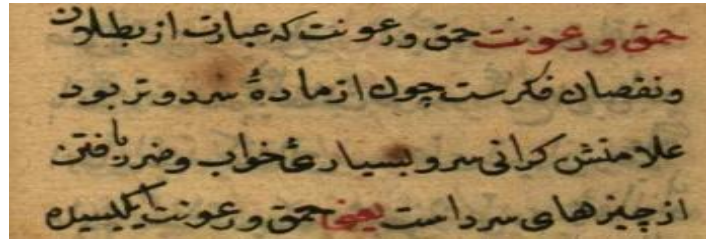 حمق ورعونت حمق ورعونت که عبارت از بطلان
ونقصان فکرست چون از مادهٔ سرد و تر بود
علامتش کرانی سر و بسیاری خواب وضرر یافتن
از چیزهای سرد است یعنی حمق ورعونت